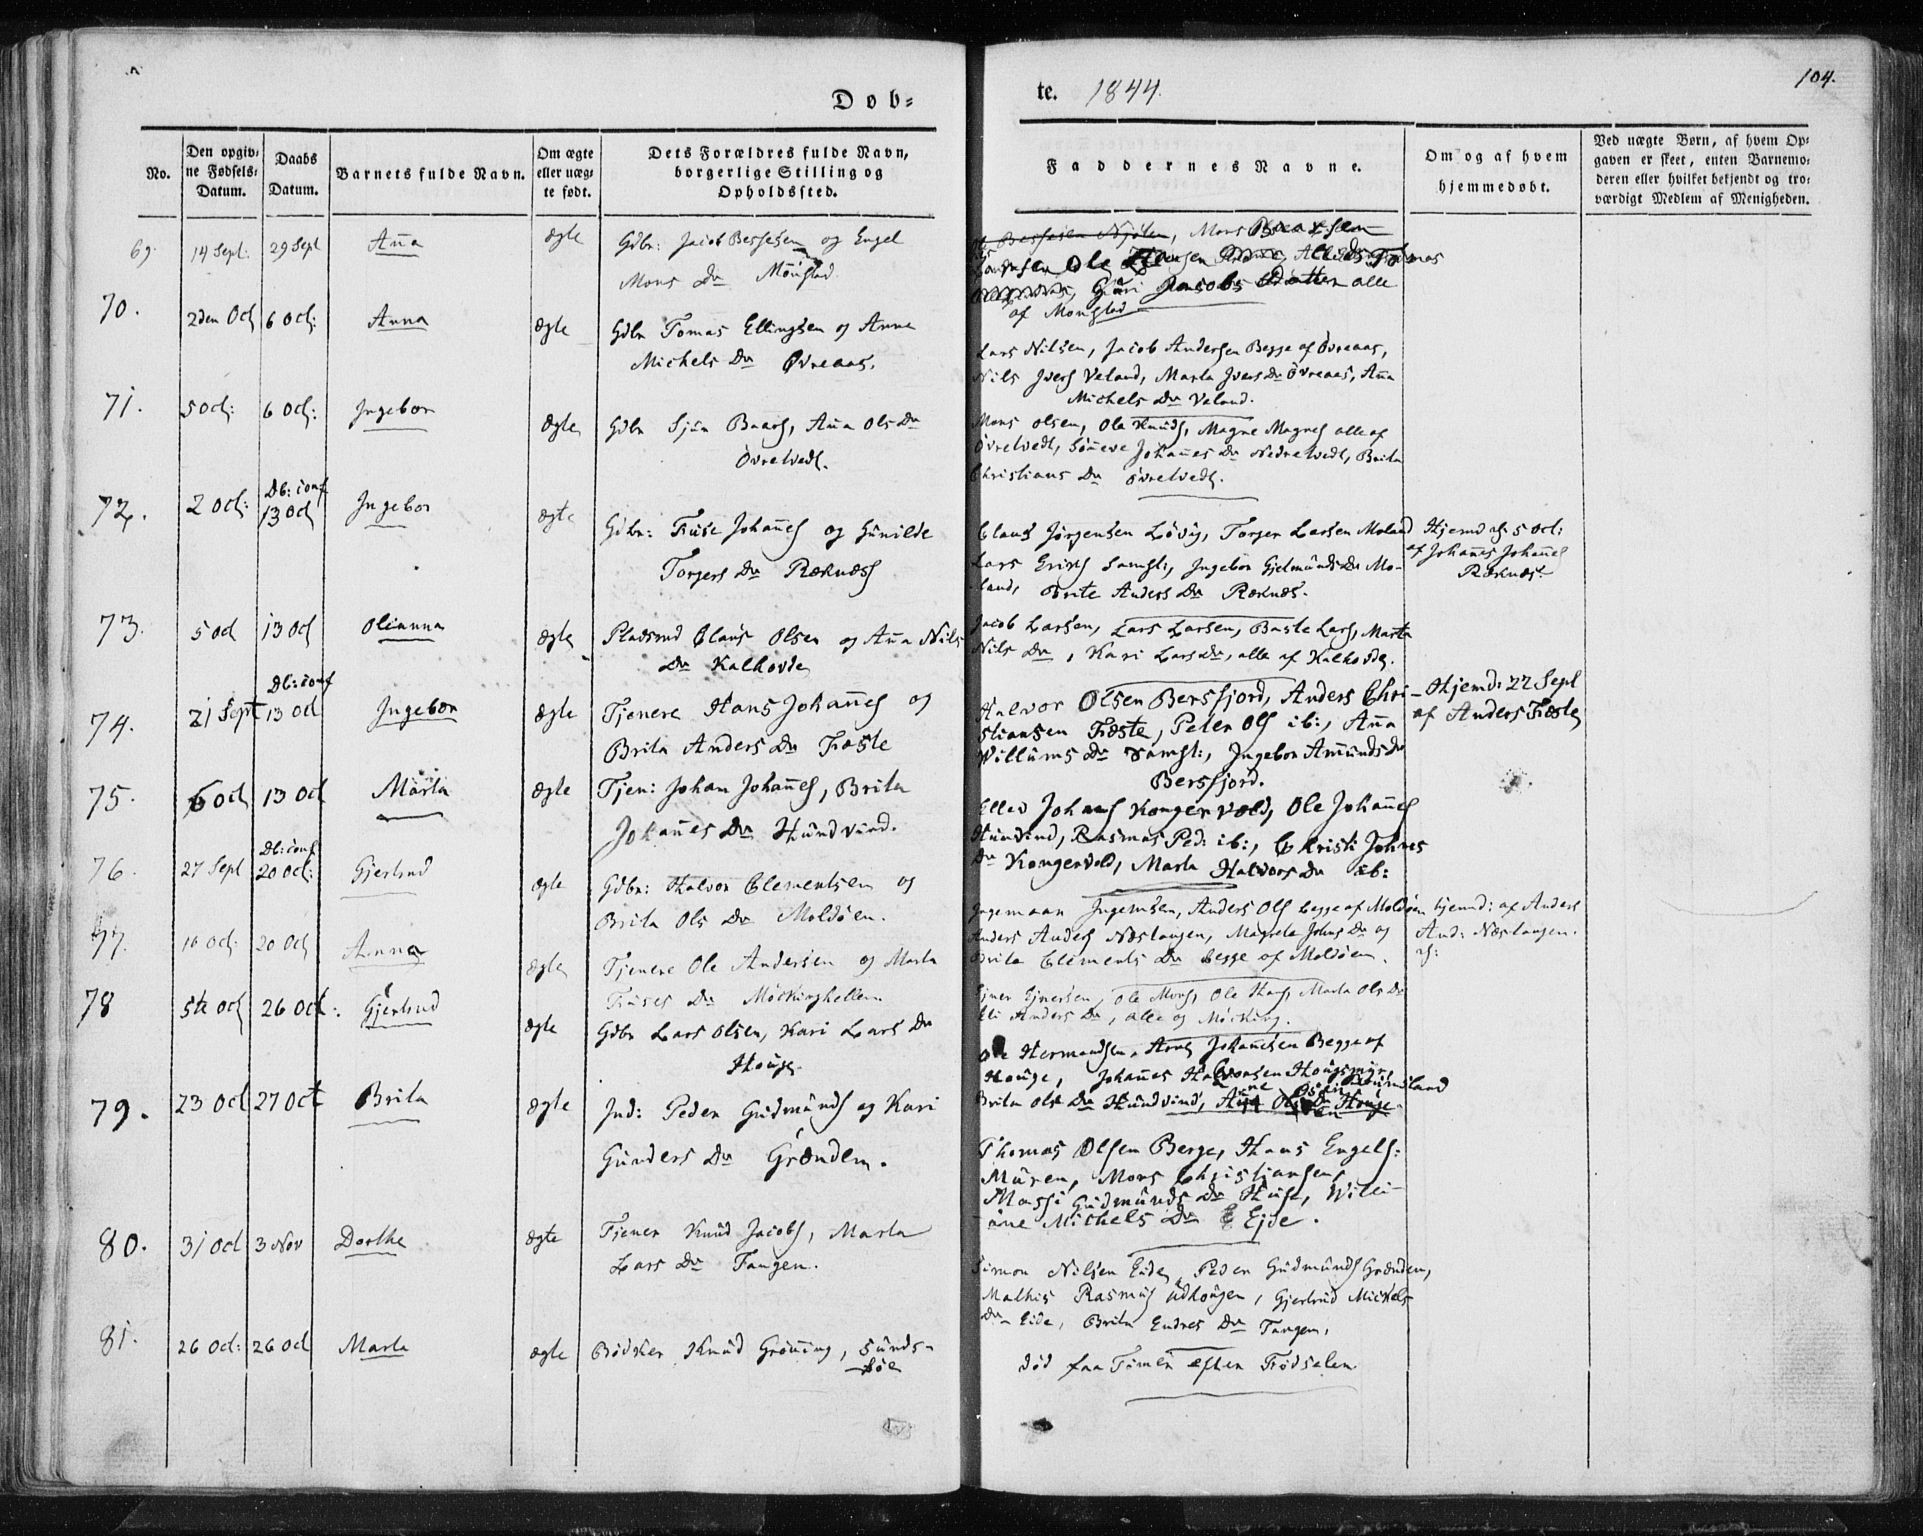 Døb-
No.
Den opgiv-
ne Fødsels-
Datum.
Daabs
Datum.
Barnets fulde Navn.
Om ægte
eller uæg-
te født.
Dets Forældres fulde Navn,
borgerlige Stilling og
Opholdssted.
69
14 Sept:
29 Sept
Aña
ægte
Gdbr: Jacob Bessesen og Engel
Mons Dr Mongstad
70.
2den Oct
6 Oct:
Anna
ægte
Gdbr Tomas Ellingsen og Anna
Michels Dr Øvreaas.
71.
5 Oct:
6 Oct:
Ingebor
ægte
Gdbr Sjur Baars, Aña Ols Dr
Øvretvedt.
72.
2 Oct:
Db: conf
13 Oct
Ingebor
ægte
Gdbr: Truse Johañes og Gunilde
Torgers Dr Røknæs
73.
5 Oct
13 Oct
Olianna
ægte
Pladsmd Claus Olsen og Aña Nils
Dr Kalhovde
74.
21 Sept
Db: conf
13 Oct
Ingebor
ægte
Tjenere Hans Johañes og
Brita Anders Dr Fæste
75.
6 Oct
13 Oct
Marta
ægte
Tjen: Johan Johañes, Brita
Johañes Dr Hundvind.
76.
27 Sept
Db: conf
20 Oct:
Gjertrud
ægte
Gdbr: Halvor Clementsen og
Brita Ols Dr Moldøen.
77.
10 Oct:
20 Oct
Anna
ægte
Tjenere Ole Andersen og Marta
Truses Dr Möckinghellen
78
5te Oct
26 Oct:
Gjertrud
ægte
Gdbr Lars Olsen, Kari Lars Dr
Houge.
79.
23 Oct
27 Oct
Brita
ægte
Ind: Peder Gudmunds og Kari
Gunders Dr Grænden.
80.
31 Oct
3 Nov
Dorthe
ægte
Tjener Knud Jacobs, Marta
Lars Dr Tangen.
81.
26 Oct:
26 Oct
Marta
ægte
Bødker Knud Grøning, Sunds-
bøe
te. 1844.
104.
Faddernes Navne.
Om og af hvem
hjemmedøbt.
Ved uægte Børn, af hvem Op-
gaven er skeet, enten Barnemo-
deren eller hvilket bekjendt og tro-
værdigt Medlem af Menigheden.
Bessesen Mjølen, Mons
Ole
Guri Jacobs Datter alle
af Mongstad
Lars Nilsen, Jacob Andersen Begge af Øvreaas,
Nils Ivers Veland, Marta Ivers Dr Øvreaas, Aña
Michels Dr Veland.
Mons Olsen, Ole Knuds, Magne Magnes alle af
Øvretvedt, Søneve Johañes Dr Nedretvedt, Brita
Christians Dr Øvretvedt.
Claus Jørgensen Løvig, Torger Larsen Moland
Lars Erichs samst:, Ingebor Gjelmunds Dr Mo-
land, Brite Anders Dr Røknæs.
Hjemd: 5 Oct:
af Johañes Johañes
Røknæs.
Jacob Larsen, Lars Larsen, Baste Lars, Marta
Nils Dr, Kari Lars Dr, alle af Kalhovde.
Halvor Olsen Bersfjord, Anders Chri-
stiansen Fæste, Peter Ols ib:, Aña
Willums Dr samst:, Ingebor Amunds Dr
Bersfjord.
Hjemd: 22 Sept
af Anders Fæste
Elled Johañs Kongervold, Ole Johañes
Hundvind, Rasmus Ped: ib:, Christi Johnes
Dr Kongervold, Marta Halvors Dr
Ingemaan Ingemsen, Anders Ols begge af Moldøen
Anders Anders Næstangen, Magrete Johns Dr og
Brita Clements Dr begge af Moldøen.
hjemd: af Anders
And: Næstangen.
Ejner Ejnersen, Ole Mons, Ole Hans, Marta Ols Dr
Eli Anders Dr, alle og Möcking.
Ole Hermandsen, Arne Johañesen Begge af
Houge, Johañes Halvorsen Hougsmyr,
Brita Ols Dr Hundvind, Houge
Thomas Olsen Berge, Hans Engels:
Müren, Mons Christiansen,
Massi Gudmunds Dr Huse, Wili-
ane Michels Dr Eide.
Simon Nilsen Eide, Peder Gudmunds Grænden,
Mathis Rasmus Udhougen, Gjertrud Mickels
Dr Eide, Brita Endres Dr Tangen.
død faa Timer efter Fødselen